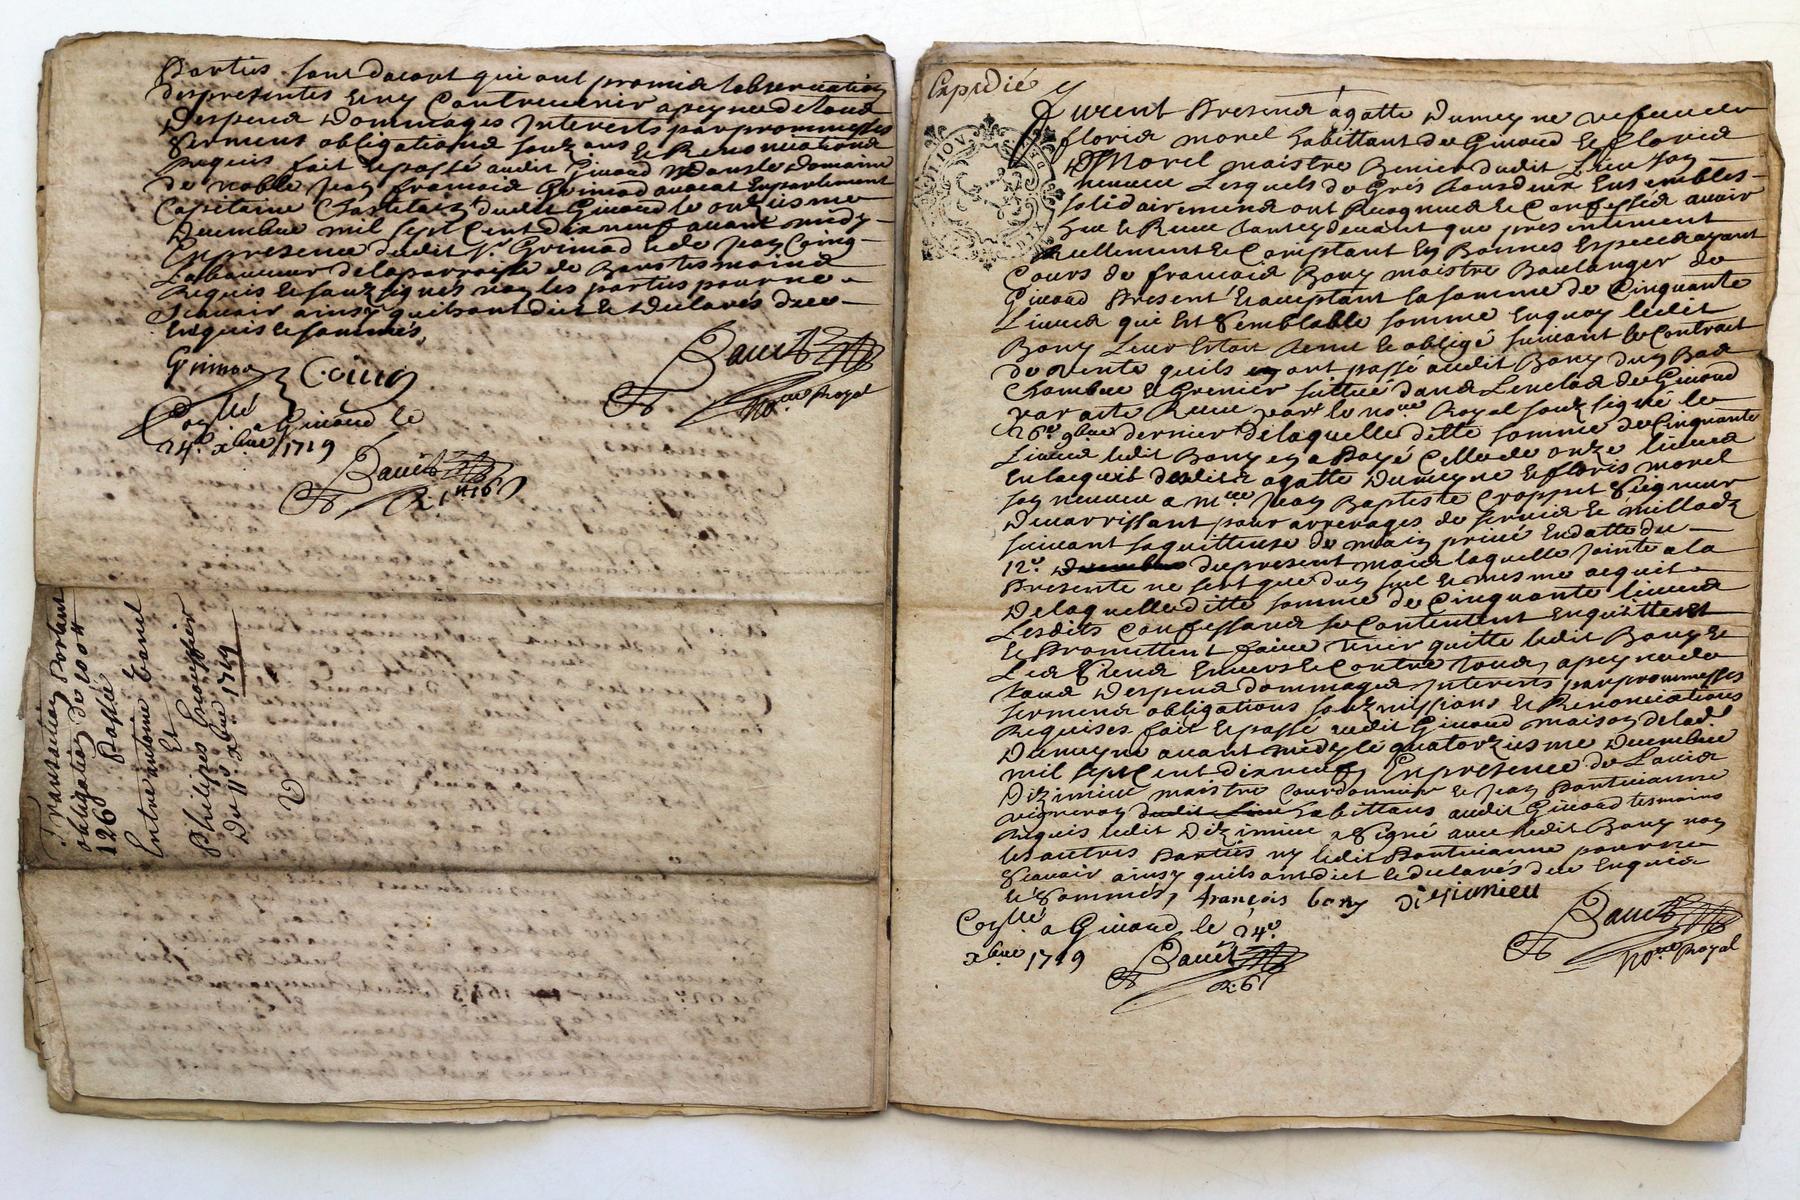 Parties sont dacort qui ont promis lobservation
des presentes et ny Contrevenir a peyne de tous
Despens Dommages Interests par promesses
Serments obligations soubmissions et Renonciations
Requis fait et passé audit Givord dans le Domaine
de noble Jean francois Grimod avocat En parlement
Capitaine Chastelain dudit Givord le onziesme
Decembre mil sept Cent dix neuf avant midy
En presence dudit Sr Grimod et de Jean Coing
Laboureur de la parroisse de Bans tesmoins
Requis et soubsignes non les parties pour ne
Scavoir ainsy quils ont dit et Declarés de ce
Enquis et sommés,
Grimod Coing
Conllé a Givord le
24e xbre 1719
R. 1# 16s
Nore Royal
Transaction Portant
obligation de 100#
126 Passée
Entre antoine
Et
Philippes
Du 11e xbre 1719
Expedié
Furent Presens agatte Dumeyne veufve de
floris morel habittant de Givord et floris
Morel maistre dudit Lieu son
nepveu Lesquels de Gres tous deux Ensembles
solidairement ont Recogneus et Confessés avoir
heu et Receu tant cy devant que presentement
Reellement et Comptant En Bonnes Especes ayant
Cours de francois Bony maistre Boulanger de
Givord Present et acceptant la somme de Cinquante
Livres qui Est Semblable somme En quoy ledit
Bony Leur Estoit tenu et obligé suivant le Contrait
de vente quils ont passé audit Bony dun Bas
Chambre et Grenier scittué dans Lenclos de Givord
par acte Receu par le nore Royal soubsigné le
26e 9bre dernier de laquelle ditte somme de Cinquante
Livres ledit Bony en a Payé Celle de onze livres
En lacquit desdits agatte Dumeyne et floris morel
son nepveu a Jean Baptiste Croppet Seigneur
De varrissant pour arrerages de servis et millods
suivant sa quittence de main privé En datte du
12e du present mois laquelle jointe a la
Presente ne sert que dun seul et mesme acquit
De laquelle ditte somme de Cinquante livres
Lesdits Confessans se Contentent En quittent
Et Promettent faire tenir quitte ledit Bony Et
Les Siens Envers et Contre tous, a peyne de
tous Despens dommages Interests par promesses
serments obligations soubmissions et Renonciations
Requises fait et passé audit Givord maison de lad.
Dumeyne avant midy le quatorziesme Decembre
mil sept Cent dix neuf En presence de Louis
Dizimieu maistre Courdonnier et Jean Pontvianne
vigneron habittans audit Givord tesmoins
Requis ledit Dizimieu a Signé avec ledit Bony non
les autres Parties ny ledit Pontvianne pour ne
Scavoir ainsy quils ont dit et declarés de ce Enquis
et Sommés, françois bony Disimieu
Conllé a Givord le 24e
xbre 1719
R. 6s
Nore Royal